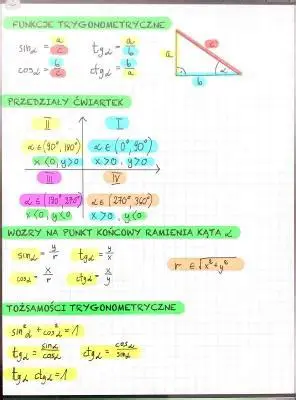 FUNKCJE TRYGONOMETRYCZNE
sinα = a/c   tgα = a/b
cosα = b/c   ctgα = b/a
c
a
α
b
PRZEDZIAŁY ĆWIARTEK
II   I
α ∈ (90°, 180°)   α ∈ (0°, 90°)
x < 0, y > 0   x > 0, y > 0
III   IV
α ∈ (180°, 270°)   α ∈ (270°, 360°)
x < 0, y < 0   x > 0, y < 0
WZORY NA PUNKT KOŃCOWY RAMIENIA KĄTA α
sinα = y/r   tgα = y/x
cosα = x/r   ctgα = x/y
r = √x²+y²
TOŻSAMOŚCI TRYGONOMETRYCZNE
sin²α + cos²α = 1
tgα = sinα/cosα   ctgα = cosα/sinα
tgα · ctgα = 1